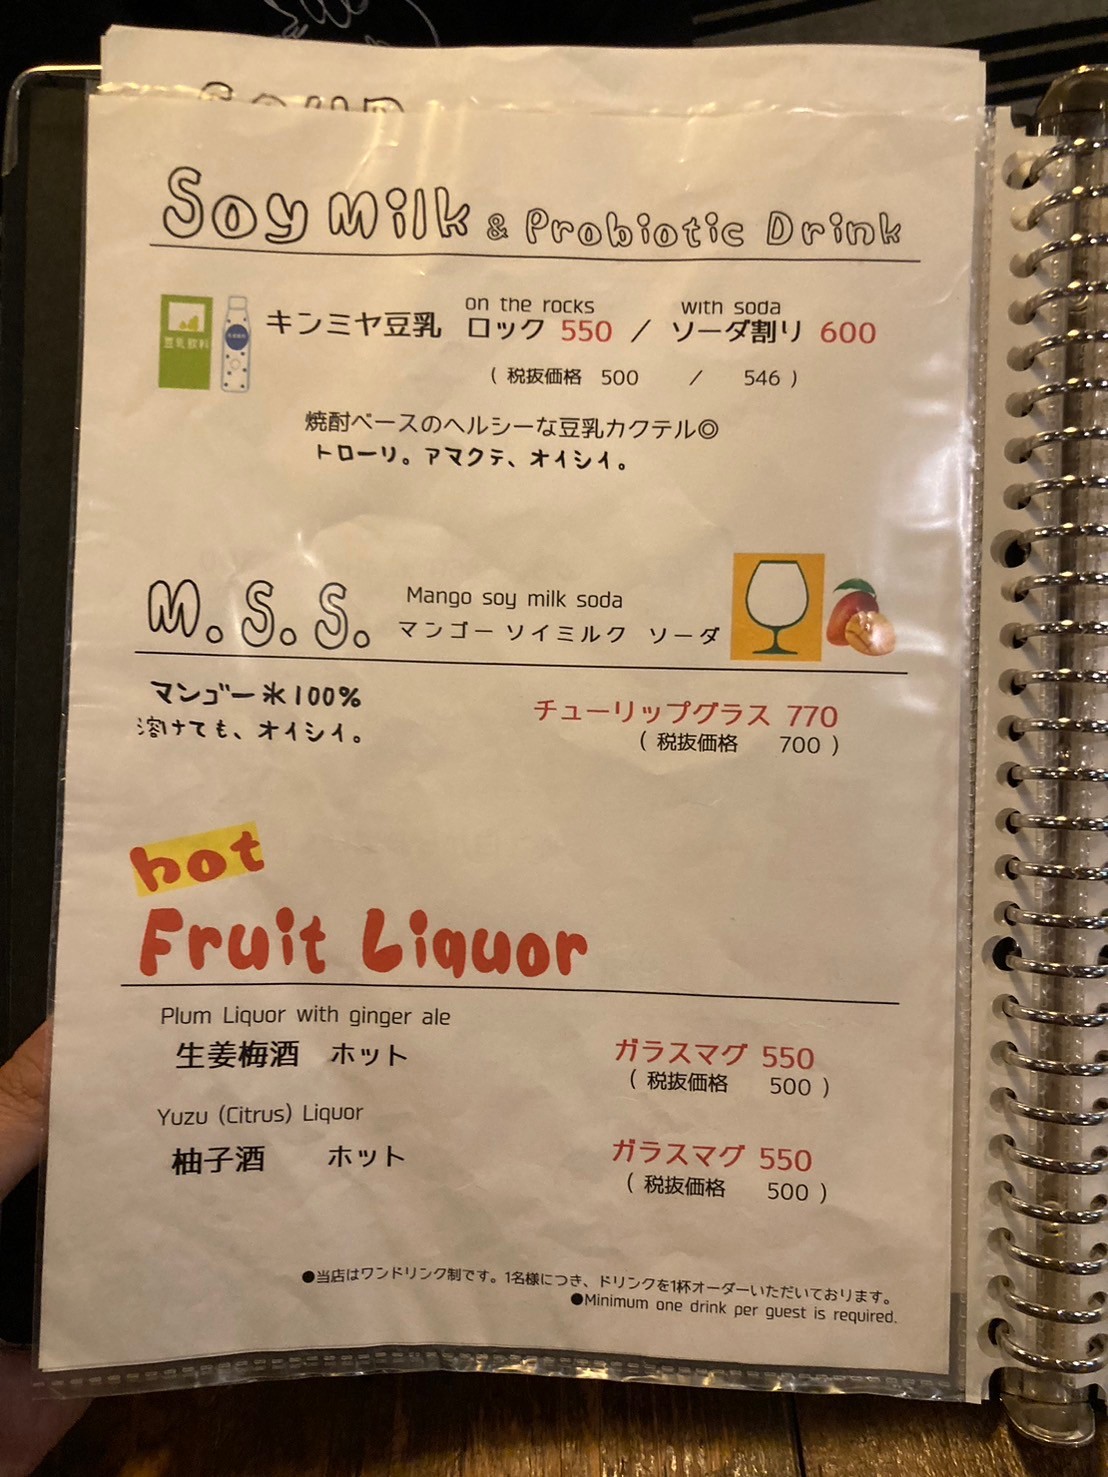 Soy Milk & Probiotic Drink
on the rocks with soda
豆乳飲料
キンミヤ豆乳 ロック 550 / ソーダ割り 600
( 税抜価格 500 / 546 )
焼酎ベースのヘルシーな豆乳カクテル◎
トローリ。アマクテ、オイシイ。
M.S.S. Mango soy milk soda
マンゴー ソイミルク ソーダ
マンゴー氷100%
溶けても、オイシイ。
チューリップグラス 770
( 税抜価格 700 )
hot
Fruit Liquor
Plum Liquor with ginger ale
生姜梅酒 ホット ガラスマグ 550
( 税抜価格 500 )
Yuzu (Citrus) Liquor
柚子酒 ホット ガラスマグ 550
( 税抜価格 500 )
●当店はワンドリンク制です。1名様につき、ドリンクを1杯オーダーいただいております。
●Minimum one drink per guest is required.